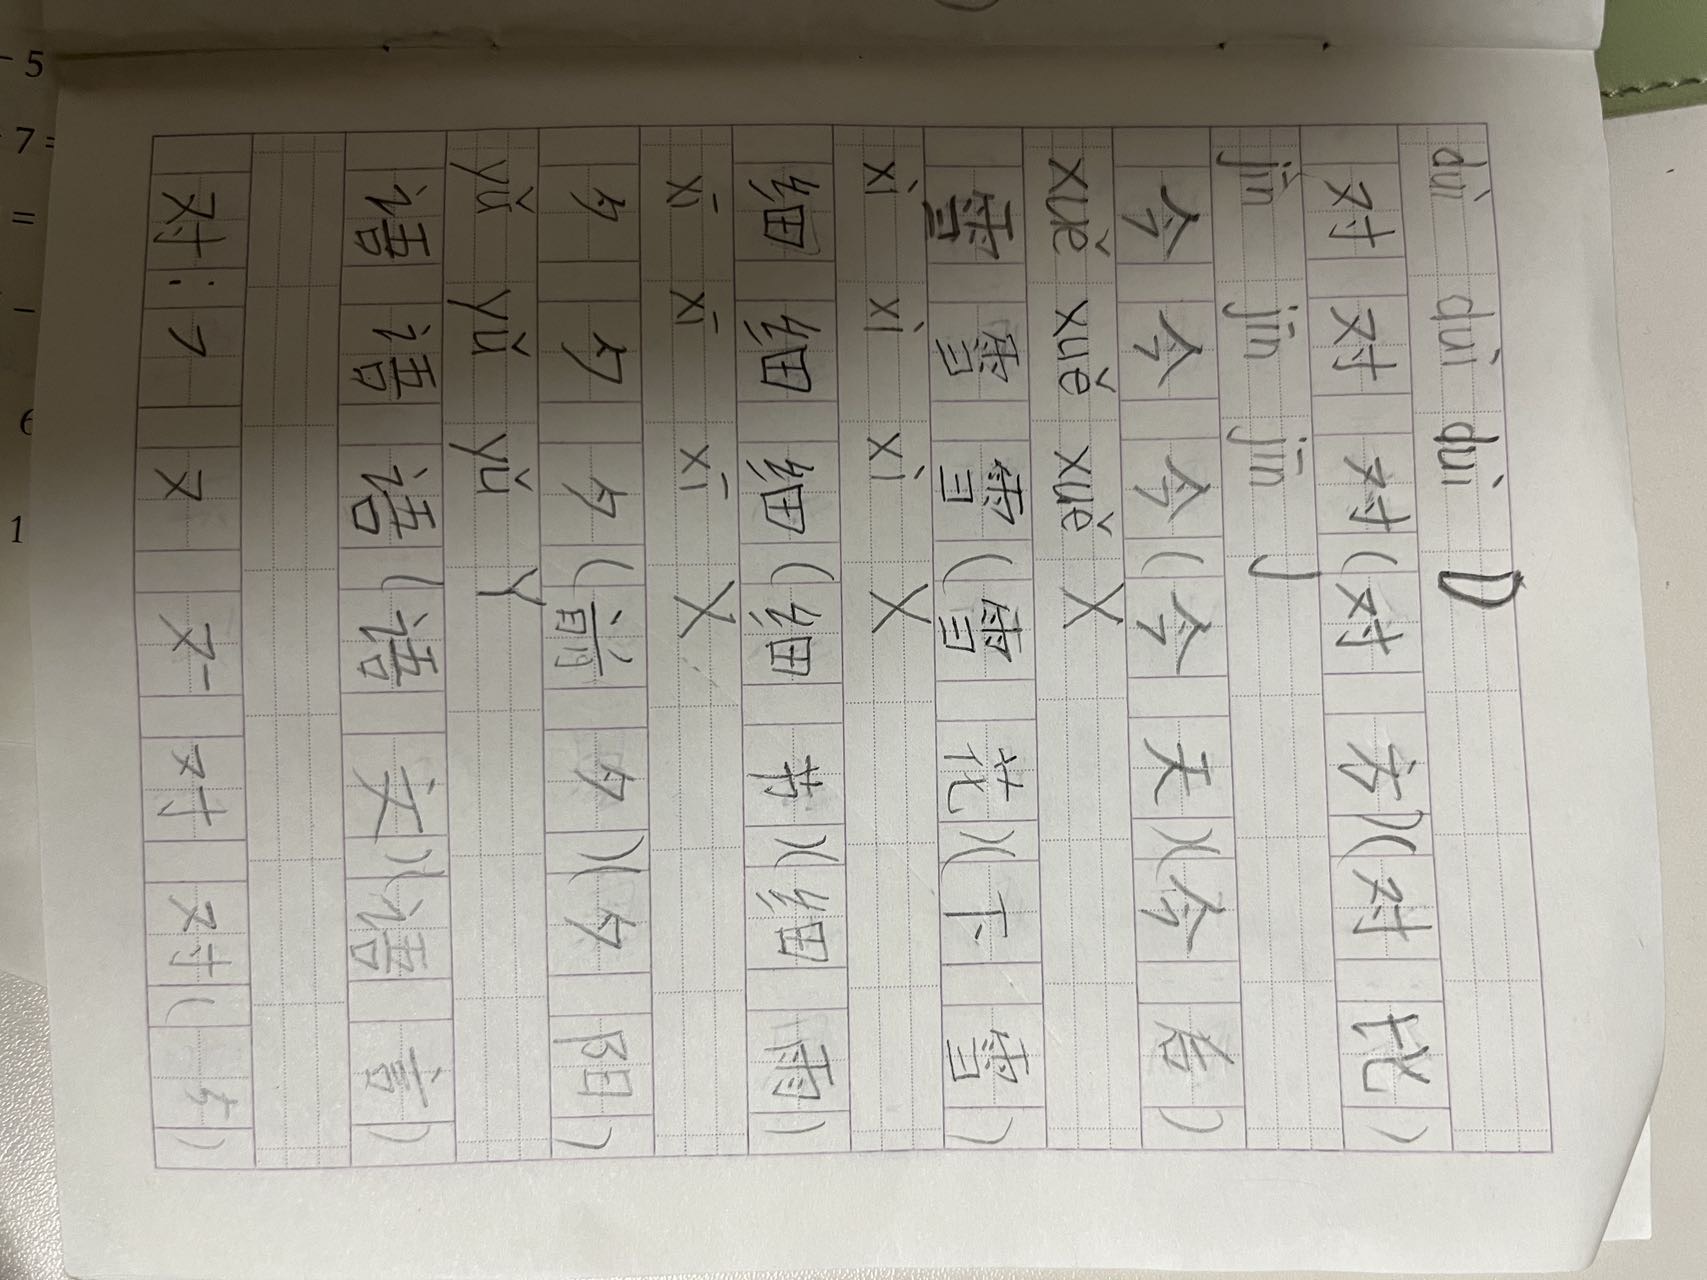 duì duì duì D
对 对 对(对方)(对代)
jīn jīn jīn J
今 今 今(今天)(今后)
xuě xuě xuě X
雪 雪 雪(雪花)(下雪)
xì xì xì X
细 细 细(细节)(细雨)
xī xī xī X
夕 夕 夕(前夕)(夕阳)
yǔ yǔ yǔ Y
语 语 语(语文)(语言)
对: フ 又 又一 对 对
- 5
7 =
=
-
6
1